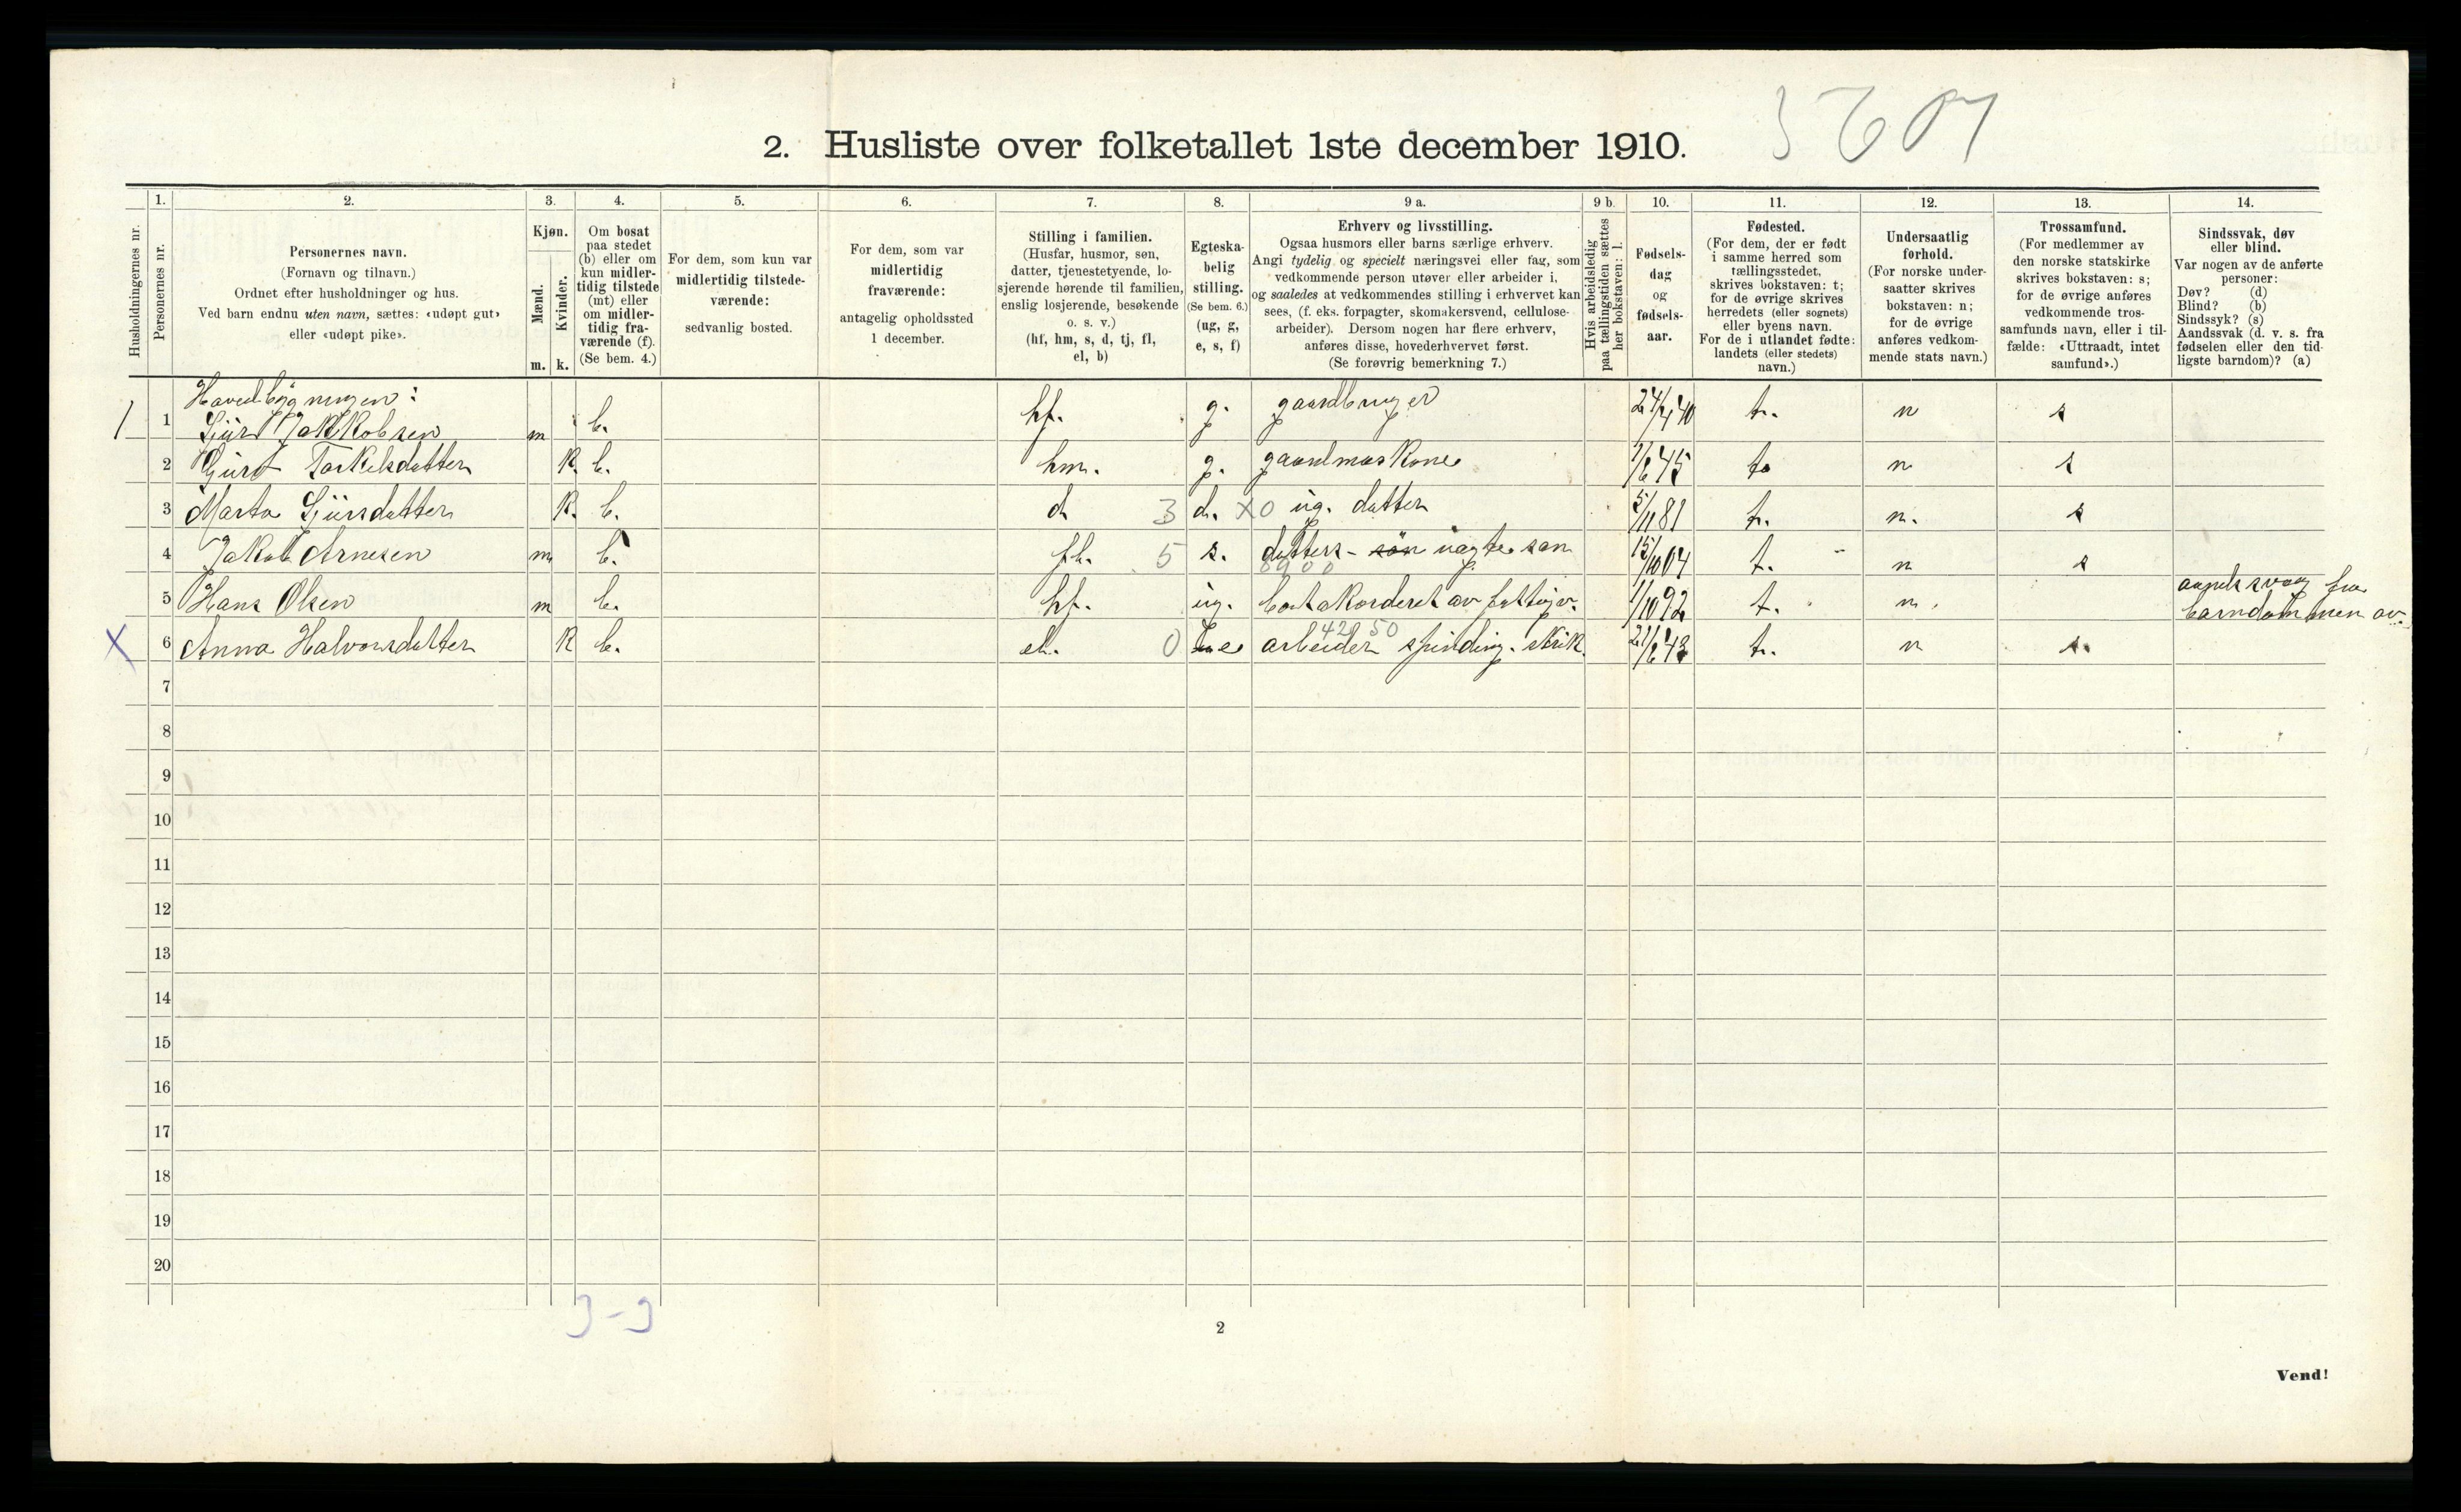 2. Husliste over folketallet 1ste december 1910.
1. 2. 3. 4. 5. 6. 7. 8. 9 a. 9 b. 10. 11. 12. 13. 14.
Husholdningernes nr.
Personernes nr.
Personernes navn.
(Fornavn og tilnavn.)
Ordnet efter husholdninger og hus.
Ved barn endnu uten navn, sættes: «udøpt gut»
eller «udøpt pike».
Kjøn.
Mænd.
Kvinder.
m. k.
Om bosat
paa stedet
(b) eller om
kun midler-
tidig tilstede
(mt) eller
om midler-
tidig fra-
værende (f).
(Se bem. 4.)
For dem, som kun var
midlertidig tilstede-
værende:
sedvanlig bosted.
For dem, som var
midlertidig
fraværende:
antagelig opholdssted
1 december.
Stilling i familien.
(Husfar, husmor, søn,
datter, tjenestetyende, lo-
sjerende hørende til familien,
enslig losjerende, besøkende
o. s. v.)
(hf, hm, s, d, tj, fl,
el, b)
Egteska-
belig
stilling.
(Se bem. 6.)
(ug, g,
e, s, f)
Erhverv og livsstilling.
Ogsaa husmors eller barns særlige erhverv.
Angi tydelig og specielt næringsvei eller fag, som
vedkommende person utøver eller arbeider i,
og saaledes at vedkommendes stilling i erhvervet kan
sees, (f. eks. forpagter, skomakersvend, cellulose-
arbeider). Dersom nogen har flere erhverv,
anføres disse, hovederhvervet først.
(Se forøvrig bemerkning 7.)
Hvis arbeidsledig
paa tællingstiden sættes
her bokstaven: l.
Fødsels-
dag
og
fødsels-
aar.
Fødested.
(For dem, der er født
i samme herred som
tællingsstedet,
skrives bokstaven: t;
for de øvrige skrives
herredets (eller sognets)
eller byens navn.
For de i utlandet fødte:
landets (eller stedets)
navn.)
Undersaatlig
forhold.
(For norske under-
saatter skrives
bokstaven: n;
for de øvrige
anføres vedkom-
mende stats navn.)
Trossamfund.
(For medlemmer av
den norske statskirke
skrives bokstaven: s;
for de øvrige anføres
vedkommende tros-
samfunds navn, eller i til-
fælde: «Uttraadt, intet
samfund».)
Sindssvak, døv
eller blind.
Var nogen av de anførte
personer:
Døv? (d)
Blind? (b)
Sindssyk? (s)
Aandssvak (d. v. s. fra
fødselen eller den tid-
ligste barndom)? (a)
Hovedbygningen:
1 1 m b. hf. g. gaardbruger t. n s
2 Torkelsdatter k. b. hm. g. gaardmaskone t. n s
3 Marta Sjursdatter k. b. d 3 d. x 0 ug. datter 5/11 81 t. n. s
4 Jakob Arnesen m b. fl. 5 s. datters- søn uægte søn 15/10 04 t. n s
5 Hans Olsen m b. hf. ug. 1/10 92 t. n.
barndommen av.
X 6 Anna Halvorsdatter k b. el. 0 e arbeider 21/6 43 t. n s.
7
8
9
10
11
12
13
14
15
16
17
18
19
20
3-3
2
Vend!